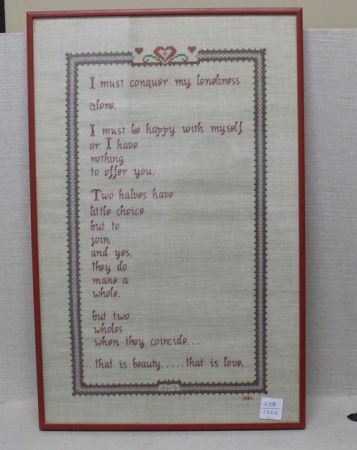 I must conquer my loneliness
alone.
I must be happy with myself
or I have
nothing
to offer you.
Two halves have
little choice
but to
join;
and yes,
they do
make a
whole.
but two
wholes
when they coincide...
that is beauty.....that is love.